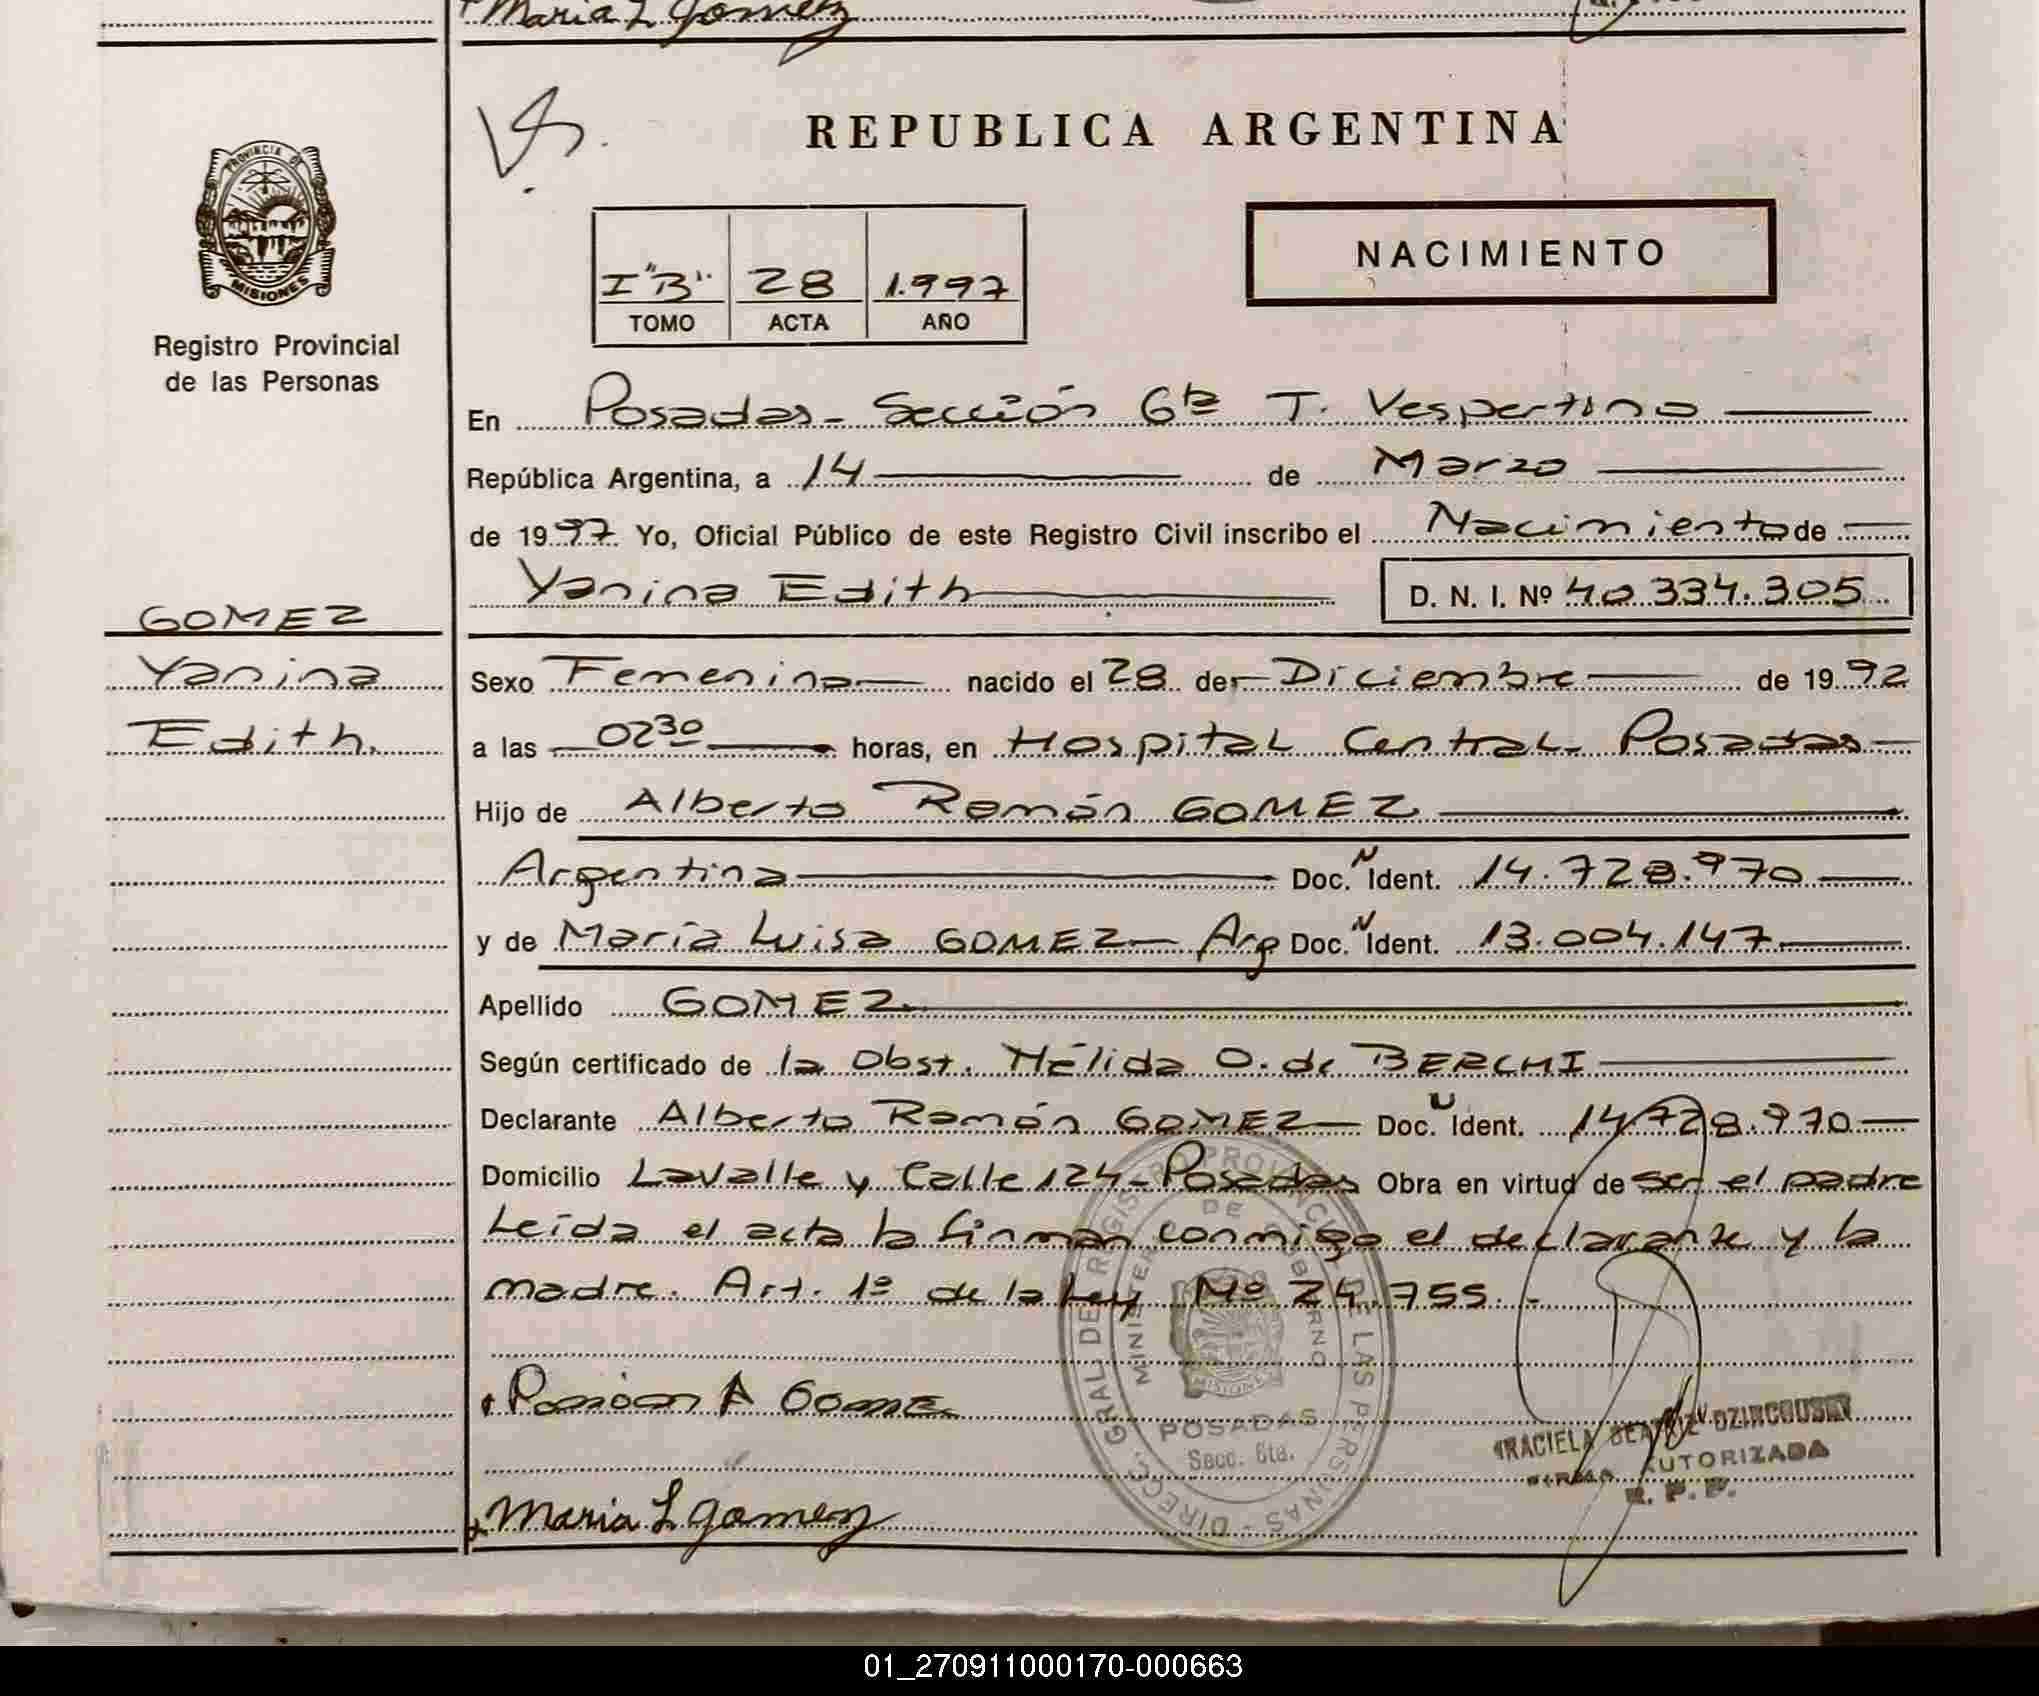 Maria L Gomez
REPUBLICA ARGENTINA
PROVINCIA DE
MISIONES
Registro Provincial
de las Personas
NACIMIENTO
I "B" 28 1.997
TOMO ACTA AÑO
En Posadas - Sección 6ta T. Vespertino
República Argentina, a 14 de Marzo
de 1997 Yo, Oficial Público de este Registro Civil inscribo el Nacimiento de
Yanina Edith D. N. I. Nº 40.334.305
GOMEZ
Yanina
Edith.
Sexo Femenino nacido el 28 de Diciembre de 1992
a las 02 30 horas, en Hospital Central - Posadas
Hijo de Alberto Ramón GOMEZ
Argentina Doc. N Ident. 14.728.970
y de María Luisa GOMEZ - Arg Doc. N Ident. 13.004.147
Apellido GOMEZ
Según certificado de la Obst. Nélida O. de BERCHI
Declarante Alberto Ramón GOMEZ Doc. N Ident. 14.728.970
Domicilio Lavalle y Calle 124 - Posadas Obra en virtud de ser el padre
Leída el acta la firman conmigo el declarante y la
madre. Art. 1º de la Ley Nº 24.755. -
Ramon A Gome
DIRECC. GRAL DEL REGISTRO PROVINCIAL DE LAS PERSONAS -
MINISTERIO DE GOBIERNO
MISIONES
POSADAS
Secc. 6ta.
GRACIELA BEATRIZ
FIRMA AUTORIZADA
R. P. P.
Maria L Gomez
01_270911000170-000663